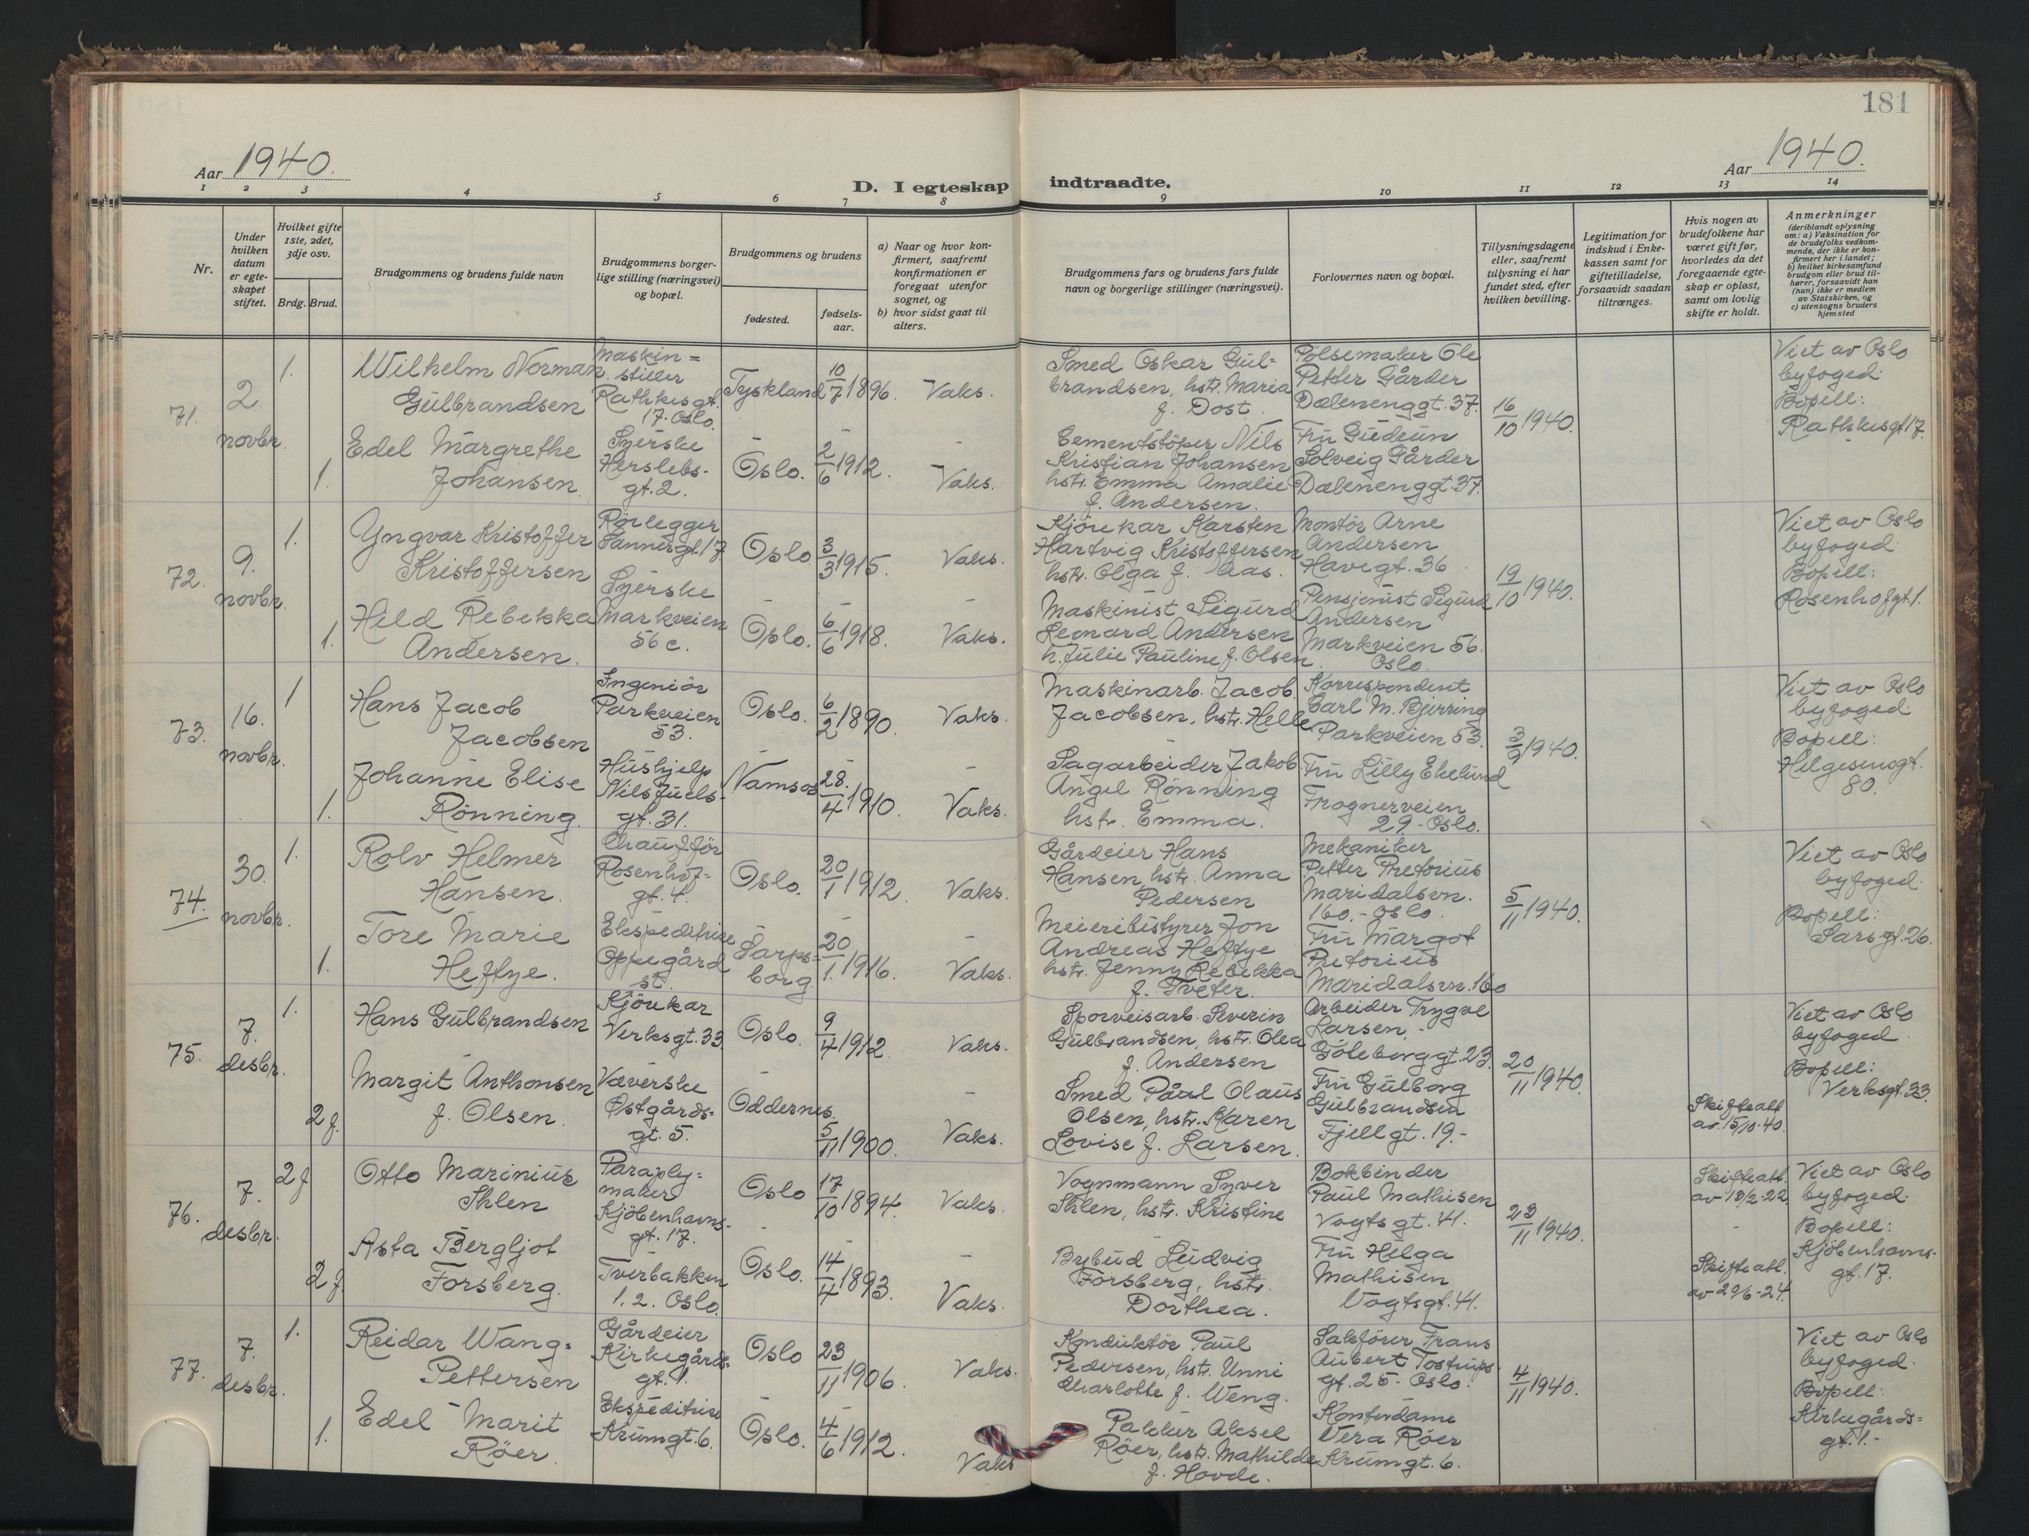 181
Aar 1940.
Aar 1940.
D. I egteskap indtraadte.
1 2 3 4 5 6 7 8 9 10 11 12 13 14
Nr.
Under hvilken datum er egte-skapet stiftet.
Hvilket gifte 1ste, 2det, 3dje osv.
Brdg. Brud.
Brudgommens og brudens fulde navn
Brudgommens borger-lige stilling (næringsvei) og bopæl.
Brudgommens og brudens
fødested.
fødsels-aar.
a) Naar og hvor kon-firmert, saafremt konfirmationen er foregaat utenfor sognet, og
b) hvor sidst gaat til alters.
Brudgommens fars og brudens fars fulde navn og borgerlige stillinger (næringsvei).
Forlovernes navn og bopæl.
Tillysningsdagene eller, saafremt tillysning ei har fundet sted, efter hvilken bevilling.
Legitimation for indskud i Enke-kassen samt for giftetilladelse, forsaavidt saadan tiltrænges.
Hvis nogen av brudefolkene har været gift før, hvorledes da det foregaaende egte-skap er opløst, samt om lovlig skifte er holdt.
Anmerkninger (deriblandt oplysning om: a) Vaksination for de brudefolks vedkom-mende, der ikke er kon-firmert her i landet; b) hvilket kirkesamfund brudgom eller brud til-hører, forsaavidt han (hun) ikke er medlem av Statskirken, og c) utensogns bruders hjemsted
71.
2. novbr.
1.
Wilhelm Norman
Gulbrandsen
Maskin=
stiller
Rathkesgt.
17. Oslo.
Tyskland
10/7 1896.
Vaks.
Smed Oskar Gul-
brandsen, hstr. Maria
f. Dost.
Pølsemaker Ole
Petter Gårder
Dælenenggt. 37.
16/10 1940.
Viet av Oslo
byfoged.
Bopell:
Rathkesgt 17.
1.
Edel Margrethe
Johansen.
Syerske
Herslebs-
gt. 2.
Oslo.
2/6 1912.
Vaks.
Cementstøper Nils
Kristian Johansen
hstr. Emma Amalie
f. Andersen.
Fru Gudrun
Solveig Gårder
Dælenenggt. 37.
72.
9. novbr.
1.
Yngvar Kristoffer
Kristoffersen
Rørlegger
Sannergt. 17.
Oslo.
3/3 1915.
Vaks.
Kjørekar Karsten
Hartvig Kristoffersen
hstr. Olga f. Aas.
Montør Arne
Andersen
Havegt. 36.
19/10 1940.
Viet av Oslo
byfoged.
Bopell:
Rosenhofgt. 1.
1.
Hild Rebekka
Andersen.
Syerske
Markveien
56 c.
Oslo.
6/6 1918.
Vaks.
Maskinist Sigurd
Leonard Andersen
h. Julie Pauline f. Olsen.
Pensjonist Sigurd
Andersen
Markveien 56.
Oslo.
73.
16. novbr.
1
Hans Jacob
Jacobsen
Ingeniør
Parkveien
53.
Oslo.
6/2 1890.
Vaks.
Maskinarb. Jacob
Jacobsen, hstr. Helle
Korrespondent
Carl M. Bjerring
Parkveien 53.
3/9 1940.
Viet av Oslo
byfoged.
Bopell:
Helgesensgt.
80.
1.
Johanne Elise
Rønning.
Hushjelp
Nils Juels-
gt. 31.
Namsos
28/4 1910.
Vaks.
Sagarbeider Jakob
Angel Rønning
hstr. Emma.
Fru Lilly Ekelund
Frognerveien
29.- Oslo.
74.
30. novbr.
1.
Rolv Helmer
Hansen.
Chauffør
Rosenhof-
gt. 4.
Oslo.
20/1 1912.
Vaks.
Gårdeier Hans
Hansen, hstr. Anna
Pedersen
Mekaniker
Petter Pretorius
Maridalsvn.
160.- Oslo.
5/11 1940.
Viet av Oslo
byfoged.
Bopell:
Sarsgt. 26.
1.
Tore Marie
Heftye.
Ekspeditrise
Oppegård
st.
Sarps-
borg.
20/1. 1916.
Vaks.
Meieribestyrer Jon
Andreas Heftye
hstr. Jenny Rebekka
f. Tveter.
Fru Margot
Pretorius
Maridalsvn. 160
75.
7. desbr.
1.
Hans Gulbrandsen
Kjørekar
Verksgt. 33
Oslo.
9/4 1912.
Vaks.
Sporveisarb. Severin
Gulbrandsen, hstr. Olea
f. Andersen
Arbeider Trygve
Larsen,
Gøteborggt. 23.
20/11 1940.
Viet av Oslo
byfoged.
Bopell:
Verksgt. 33.
2 f.
Margit Anthonsen
f. Olsen.
Væverske
Østgårds-
gt. 5.
Oddernes.
5/11 1900.
Vaks.
Smed Påul Olaus
Olsen, hstr. Karen
Lovise f. Larsen.
Fru Gulborg
Gulbrandsen
Fjellgt. 19.-
Skifteatt
av 15/10-40.
76.
7. desbr.
2 f
Otto Marinius
Ihlen
Paraply-
maker
Kjøbenhavns-
gt. 17.
Oslo
17/10 1894.
Vaks.
Vognmann Syver
Ihlen, hstr. Kristine
Bokbinder
Paul Mathisen
Vogtsgt. 41.
23/11 1940.
Skifteatt.
Viet av Oslo
byfoged.
Bopell:
Kjøbenhavns-
gt. 17.
2 f.
Asta Bergljot
Forsberg.
Tverbakken
1. 2. Oslo.
Oslo.
14/4 1893.
Vaks.
Bybud Ludvig
Forsberg, hstr.
Dorthea.
Fru Helga
Mathisen
Vogtsgt. 41.
Skifteatt.
av 2 9/6-24.
77.
7. desbr.
1.
Reidar Wang-
Pettersen
Gårdeier
Kirkegårds-
gt. 1.
Oslo
23/11 1906.
Vaks.
Konduktør Paul
Pedersen, hstr. Unni
Charlotte f. Weng.
Sakfører Frans
Aubert Tostrups-
gt. 25- Oslo.
4/11 1940.
Viet av Oslo
byfoged.
Bopell:
Kirkegårds=
gt. 1.-
1.
Edel Marit
Røer.
Ekspeditrise
Krumgt. 6.
Oslo.
4/6 1912.
Vaks
Pakkur Aksel
Røer, hstr. Mathilde
f. Hovde.
Kontordame
Vera Røer
Krumgt. 6.